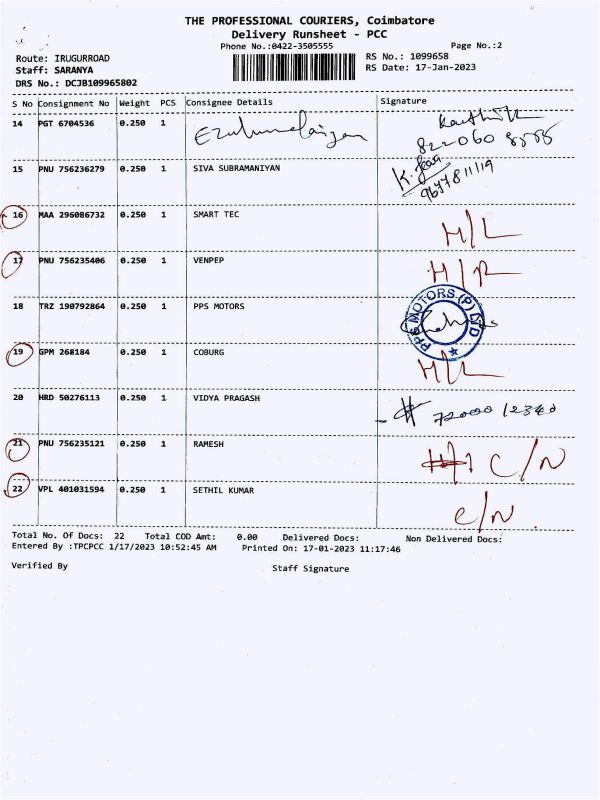 THE PROFESSIONAL COURIERS, Coimbatore
Delivery Runsheet - PCC
Phone No.:0422-3505555 Page No.:2
Route: IRUGURROAD RS No.: 1099658
Staff: SARANYA RS Date: 17-Jan-2023
DRS No.: DCJB109965802
S No Consignment No Weight PCS Consignee Details Signature
14 PGT 6704536 0.250 1
15 PNU 756236279 0.250 1 SIVA SUBRAMANIYAN
9677811119
16 MAA 296086732 0.250 1 SMART TEC H/L
17 PNU 756235406 0.250 1 VENPEP H/R
18 TRZ 190792864 0.250 1 PPS MOTORS PPS MOTORS (P) LTD
19 GPM 268184 0.250 1 COBURG H/L
20 HRD 50276113 0.250 1 VIDYA PRAGASH
21 PNU 756235121 0.250 1 RAMESH C/N
22 VPL 401031594 0.250 1 SETHIL KUMAR C/N
Total No. Of Docs: 22 Total COD Amt: 0.00 Delivered Docs: Non Delivered Docs:
Entered By :TPCPCC 1/17/2023 10:52:45 AM Printed On: 17-01-2023 11:17:46
Verified By Staff Signature